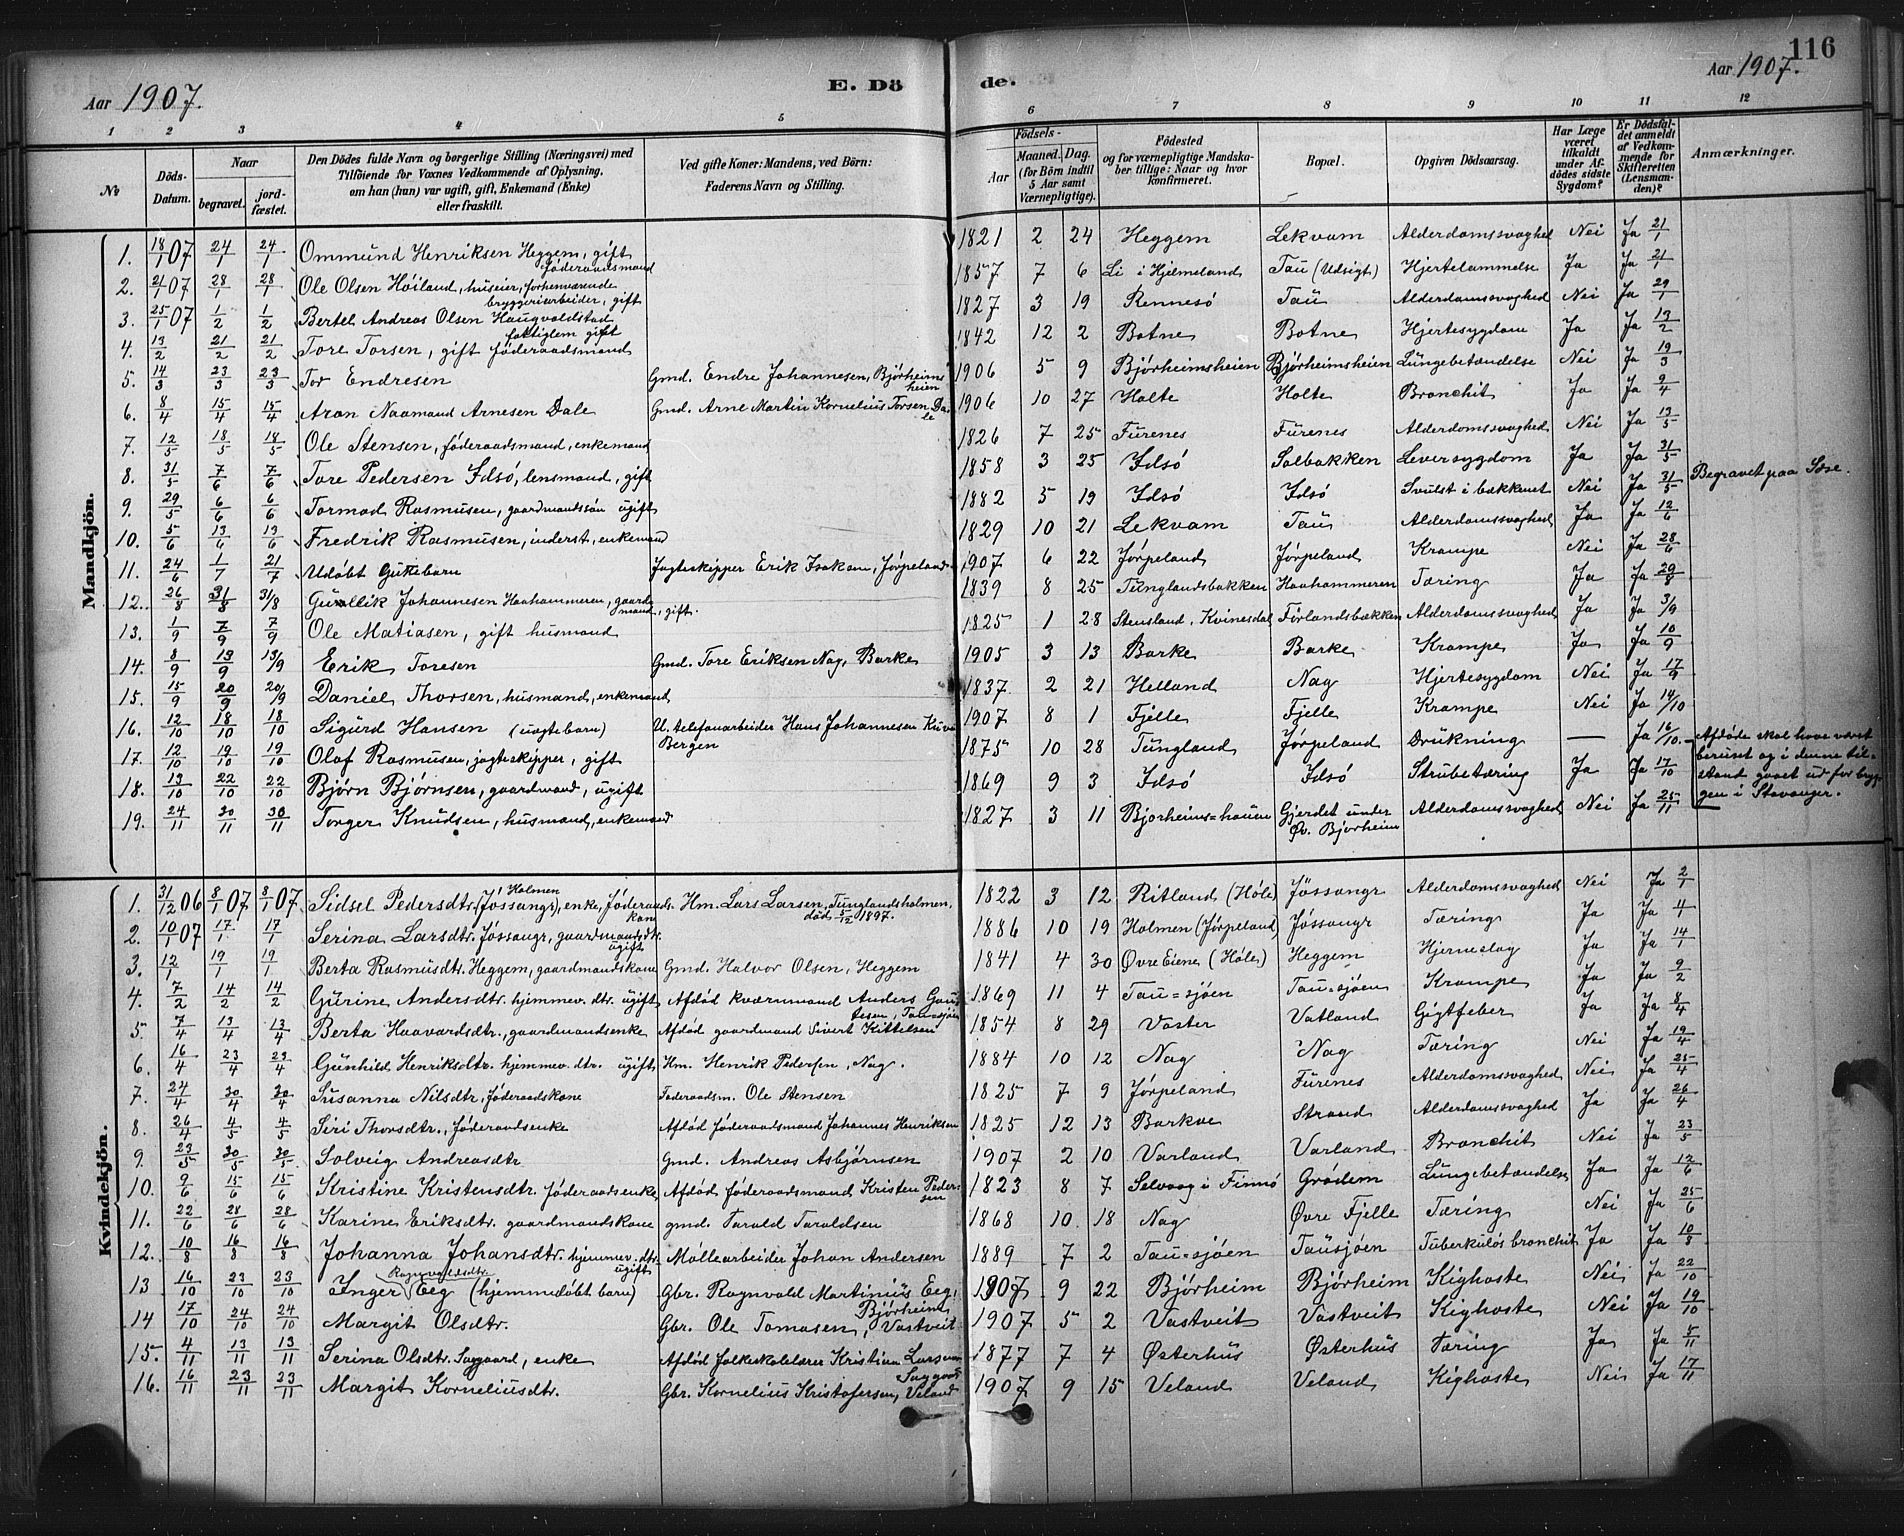 116
Aar 1907. E. Dö de. Aar 1907.
1 2 3 4 5 6 7 8 9 10 11 12
No Döds-Datum. Naar begravet. jordfæstet. Den Dödes fulde Navn og borgerlige Stilling (Næringsvei) med Tilföiende for Voxnes Vedkommende af Oplysning, om han (hun) var ugift, gift, Enkemand (Enke) eller fraskilt. Ved gifte Koner: Mandens, ved Börn: Faderens Navn og Stilling. Födsels- Aar Maaned. Dag. (for Börn indtil 5 Aar samt Værnepligtige). Födested og for værnepligtige Mandskaber tillige: Naar og hvor konfirmeret. Bopæl. Opgiven Dödsaarsag. Har Læge været tilkaldt under Afdödes sidste Sygdom? Er Dödsfaldet anmeldt af Vedkommende for Skifteretten (Lensmanden)? Anmærkninger.
Mandkjön.
1. 18/1 07 24/1 24/1 Ommund Henriksen Heggem, gift föderaadsmand 1821 2 24 Heggem Lekvam Alderdomssvaghed Nei Ja 21/1
2. 21/1 07 28/1 28/1 Ole Olsen Höiland, huseier, forhenværende bryggeriarbeider, gift 1857 7 6 Li i Hjelmeland Tau (Udsigt) Hjertelammelse Ja Ja 21/1
3. 25/1 07 1/2 1/2 Bertel Andreas Olsen Haugvaldstad fattiglem gift 1827 3 19 Rennesö Tau Alderdomssvaghed Nei Ja 29/1
4. 13/2 21/2 21/2 Tore Torsen, gift föderaadsmand 1842 12 2 Botne Botne Hjertesygdom Ja Ja 13/2
5. 14/3 23/3 23/3 Tor Endresen Gmd. Endre Johannesen, Björheimsheien 1906 5 9 Bjørheimsheien Bjørheimsheien Lungebetændelse Nei Ja 19/3
6. 8/4 15/4 15/4 Aron Naamand Arnesen Dale Gmd. Arne Martin Kornelius Torsen Dale 1906 10 27 Holte Holte Bronchit Ja Ja 9/4
7. 12/5 18/5 18/5 Ole Stensen, föderaadsmand, enkemand 1826 7 25 Furenes Furenes Alderdomssvaghed Nei Ja 13/5
8. 31/5 7/6 7/6 Tore Pedersen Idsö, lensmand, gift 1858 3 25 Idsö Solbakken Leversygdom Ja Ja 31/5 Begravet paa
9. 29/5 6/6 6/6 Tormod Rasmusen, gaardmandssön ugift 1882 5 19 Idsö Idsö Svulst i bækkenet Nei Ja 31/5
10. 5/6 13/6 13/6 Fredrik Rasmusen, inderst, enkemand 1829 10 21 Lekvam Tau Alderdomssvaghed Ja Ja 12/6
11. 24/6 1/7 21/7 Udöbt Guttebarn Jagteskipper Erik Isaksen, Jørpeland 1907 6 22 Jørpeland Jørpeland Krampe Nei Ja 28/6
12. 26/8 31/8 31/8 Gullik Johannesen Haahammeren, gaardmand, gift. 1839 8 25 Tunglandsbakken Haahammeren Tæring Ja Ja 29/8
13. 1/9 7/9 7/9 Ole Matiasen, gift husmand 1825 1 28 Stensland, Kvinesdal Førlandsbakken Alderdomssvaghed Ja Ja 3/9
14. 8/9 13/9 13/9 Erik Toresen Gmd. Tore Eriksen Nag, Barke 1905 3 13 Barke Barke Krampe Ja Ja 10/9
15. 15/9 20/9 20/9 Daniel Thorsen, husmand, enkemand 1837 2 21 Helland Nag Hjertesygdom Nei Ja 17/9
16. 12/10 18/10 18/10 Sigurd Hansen (uægtebarn) U. telefonarbeider Hans Johannesen Bergen 1907 8 1 Fjelle Fjelle Krampe Nei Ja 14/10
17. 12/10 19/10 19/10 Olaf Rasmusen, jagteskipper, gift 1875 10 28 Tungland Jørpeland Drukning — Ja 16/10. Afdöde skal have været beruset og i denne tilstand gaaet ud for bryggen i Stavanger.
18. 13/10 22/10 22/10 Bjørn Bjørnsen, gaardmand, ugift 1869 9 3 Idsö Idsö Strubetæring Ja Ja 17/10
19. 24/11 30/11 30/11 Torger Knudsen, husmand, enkemand 1827 3 11 Bjorheims=hauen Gjerdet under Öv. Bjorheim Alderdomssvaghed Nei Ja 25/11
Kvindekjön.
1. 31/12 06 8/1 07 8/1 07 Sidsel Pedersdtr. Holmen (Jössangr), enke, föderaadskone Hm. Lars Larsen, Tunglandsholmen, död 5/12 1897. 1822 3 12 Ritland (Höle) Jössangr Alderdomssvaghed Nei Ja 2/1
2. 10/1 07 17/1 17/1 Serina Larsdtr. Jössangr, gaardmandsdtr. ugift 1886 10 19 Holmen (Jørpeland) Jøssangr Tæring Ja Ja 4/1
3. 12/1 19/1 19/1 Berta Rasmusdtr. Heggem, gaardmandskone Gmd. Halvor Olsen, Heggem 1841 4 30 Øvre Eiene (Höle) Heggem Hjerneslag Ja Ja 14/1
4. 7/2 14/2 14/2 Gurine Andersdtr. hjemmev. dtr. ugift Afdöd kværnmand Anders 1869 11 4 Tau=sjøen Tau=sjøen Krampe Ja Ja 9/2
5. 7/4 13/4 13/4 Berta Haavardsdtr., gaardmandsenke Afdöd gaardmand Sivert Kittelsen 1854 8 29 Voster Vatland Gigtfeber Ja Ja 8/4
6. 16/4 23/4 23/4 Gunhild Henriksdtr. hjemmev. dtr. ugift Hm. Henrik Pedersen, Nag. 1884 10 12 Nag Nag Tæring Nei Ja 19/4
7. 24/4 30/4 30/4 Susanna Nilsdtr., föderaadskone Föderaadsm. Ole Stensen 1825 7 9 Jørpeland Furenes Alderdomssvaghed Nei Ja 25/4
8. 26/4 4/5 4/5 Siri Thorsdtr., föderaadsenke Afdöd föderaadsmand Johannes Henriksen 1825 12 13 Barkve Strand Alderdomssvaghed Ja Ja 26/4
9. 23/5 30/5 30/5 Solveig Andreasdtr Gmd. Andreas Asbjörnsen 1907 2 10 Varland Varland Bronchit Nei Ja 23/5
10. 9/6 15/6 15/6 Kristine Kristensdtr. föderaadsenke Afdöd föderaadsmand Kristen Pedersen 1823 8 7 Selvaag i Finnö Grödem Lungebetændelse Ja Ja 12/6
11. 22/6 28/6 28/6 Karine Eriksdtr. gaardmandskone gmd. Tarald Taraldsen 1868 10. 18 Nag Øvre Fjelle Tæring Nei Ja 25/6
12. 10/8 16/8 16/8 Johanna Johansdtr. hjemmev. dtr. ugift Möllearbeider Johan Andersen 1889 7 2 Tau=sjøen Tausjøen Tuberkuløs bronchit Ja Ja 10/8
13 16/10 23/10 23/10 Inger Ragnvaldsdtr. Eeg (hjemmedöbt barn) Gbr. Ragnvald Martinius Eeg, Bjørheim 1907 9 22 Bjørheim Bjørheim Kighoste Nei Ja 22/10
14 17/10 24/10 24/10 Margit Olsdtr. Gbr. Ole Tomasen, Vastveit 1907 5 2 Vastveit Vastveit Kighoste Nei Ja 19/10
15. 4/11 13/11 13/11 Serina Olsdtr. Saggaard, enke Afdöd folkeskolelærer Kristian Larsen 1877 7 4 Østerhus Østerhus Tæring Ja Ja 5/11
16. 16/11 23/11 23/11 Margit Korneliusdtr. Gbr. Kornelius Kristofersen, Veland 1907 9 15 Veland Veland Kighoste Nei Ja 17/11